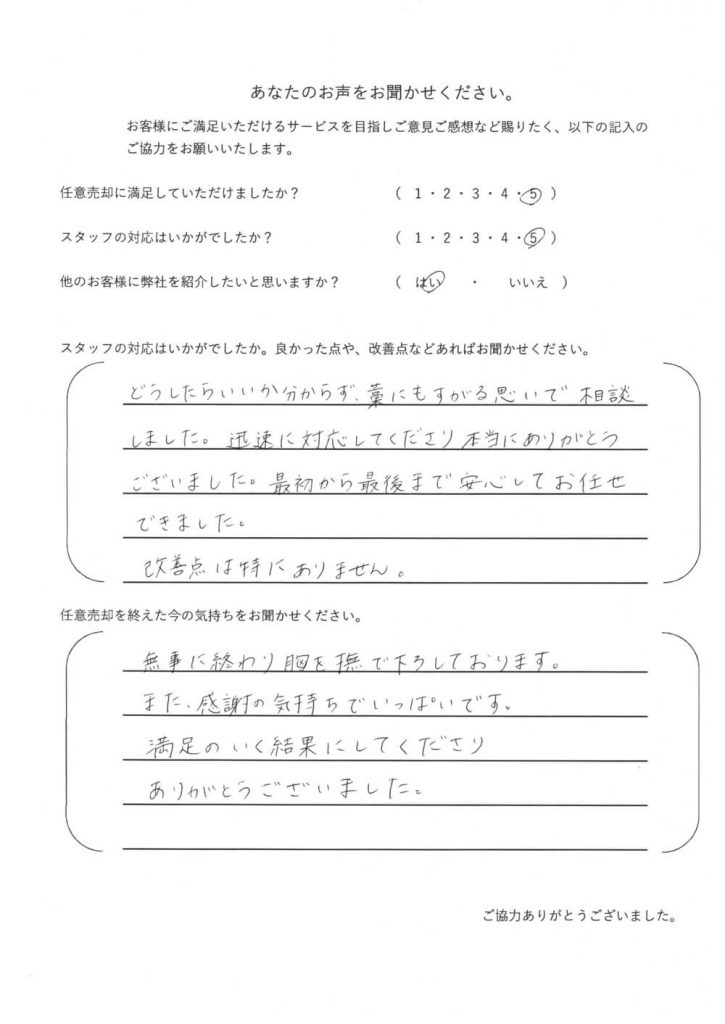 あなたのお声をお聞かせください。
お客様にご満足いただけるサービスを目指しご意見ご感想など賜りたく、以下の記入の
ご協力をお願いいたします。
任意売却に満足していただけましたか？ （ 1・2・3・4・5 ）
スタッフの対応はいかがでしたか？ （ 1・2・3・4・5 ）
他のお客様に弊社を紹介したいと思いますか？ （ はい ・ いいえ ）
スタッフの対応はいかがでしたか。良かった点や、改善点などあればお聞かせください。
どうしたらいいか分からず、藁にもすがる思いで相談
しました。迅速に対応してくださり本当にありがとう
ございました。最初から最後まで安心してお任せ
できました。
改善点は特にありません。
任意売却を終えた今の気持ちをお聞かせください。
無事に終わり胸を撫で下ろしております。
また、感謝の気持ちでいっぱいです。
満足のいく結果にしてくださり
ありがとうございました。
ご協力ありがとうございました。